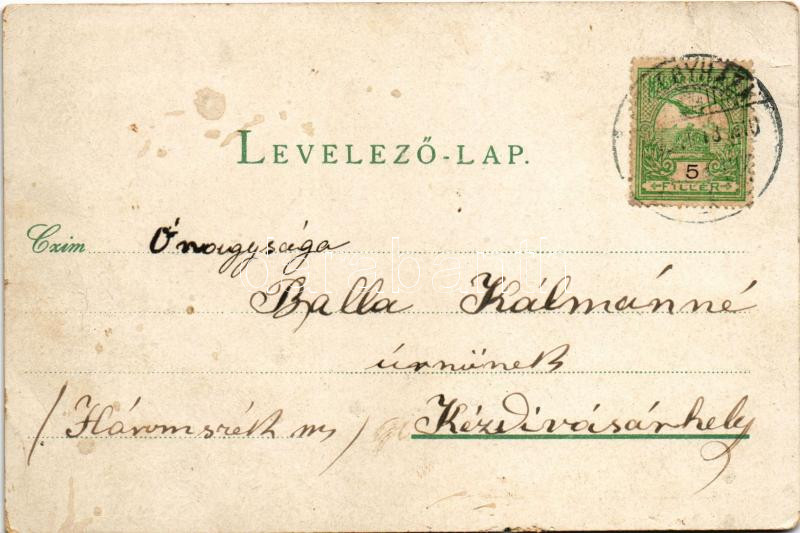 LEVELEZŐ-LAP.
5
FILLÉR
Czim Őnagysága
Balla Kálmánné
úrnőnek
(Háromszék m) Kézdivásárhely